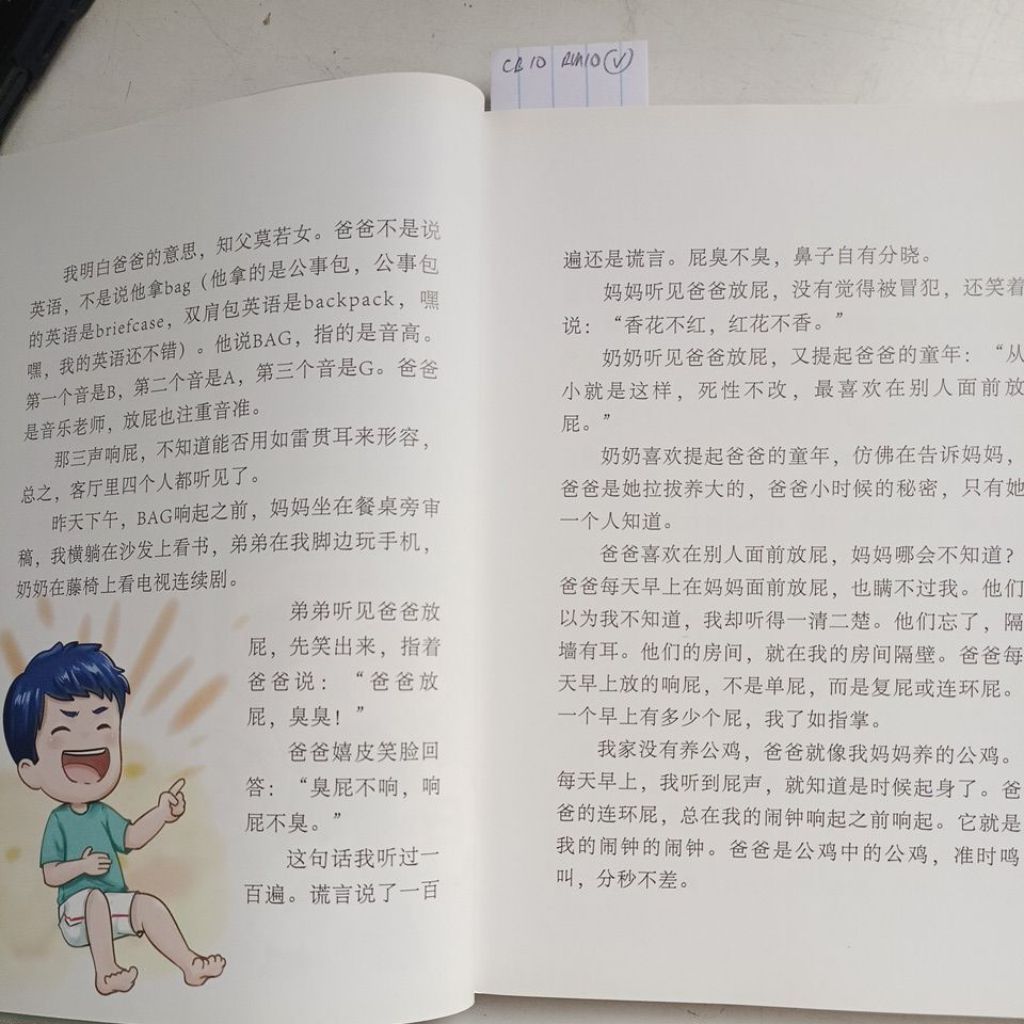 CB 10 RM10
我明白爸爸的意思，知父莫若女。爸爸不是说
英语，不是说他拿bag（他拿的是公事包，公事包
的英语是briefcase，双肩包英语是backpack，嘿
嘿，我的英语还不错）。他说BAG，指的是音高。
第一个音是B，第二个音是A，第三个音是G。爸爸
是音乐老师，放屁也注重音准。
那三声响屁，不知道能否用如雷贯耳来形容，
总之，客厅里四个人都听见了。
昨天下午，BAG响起之前，妈妈坐在餐桌旁审
稿，我横躺在沙发上看书，弟弟在我脚边玩手机，
奶奶在藤椅上看电视连续剧。
弟弟听见爸爸放
屁，先笑出来，指着
爸爸说：“爸爸放
屁，臭臭！”
爸爸嬉皮笑脸回
答：“臭屁不响，响
屁不臭。”
这句话我听过一
百遍。谎言说了一百
遍还是谎言。屁臭不臭，鼻子自有分晓。
妈妈听见爸爸放屁，没有觉得被冒犯，还笑着
说：“香花不红，红花不香。”
奶奶听见爸爸放屁，又提起爸爸的童年：“从
小就是这样，死性不改，最喜欢在别人面前放
屁。”
奶奶喜欢提起爸爸的童年，仿佛在告诉妈妈，
爸爸是她拉拔养大的，爸爸小时候的秘密，只有她
一个人知道。
爸爸喜欢在别人面前放屁，妈妈哪会不知道？
爸爸每天早上在妈妈面前放屁，也瞒不过我。他们
以为我不知道，我却听得一清二楚。他们忘了，隔
墙有耳。他们的房间，就在我的房间隔壁。爸爸每
天早上放的响屁，不是单屁，而是复屁或连环屁。
一个早上有多少个屁，我了如指掌。
我家没有养公鸡，爸爸就像我妈妈养的公鸡。
每天早上，我听到屁声，就知道是时候起身了。爸
爸的连环屁，总在我的闹钟响起之前响起。它就是
我的闹钟的闹钟。爸爸是公鸡中的公鸡，准时鸣
叫，分秒不差。